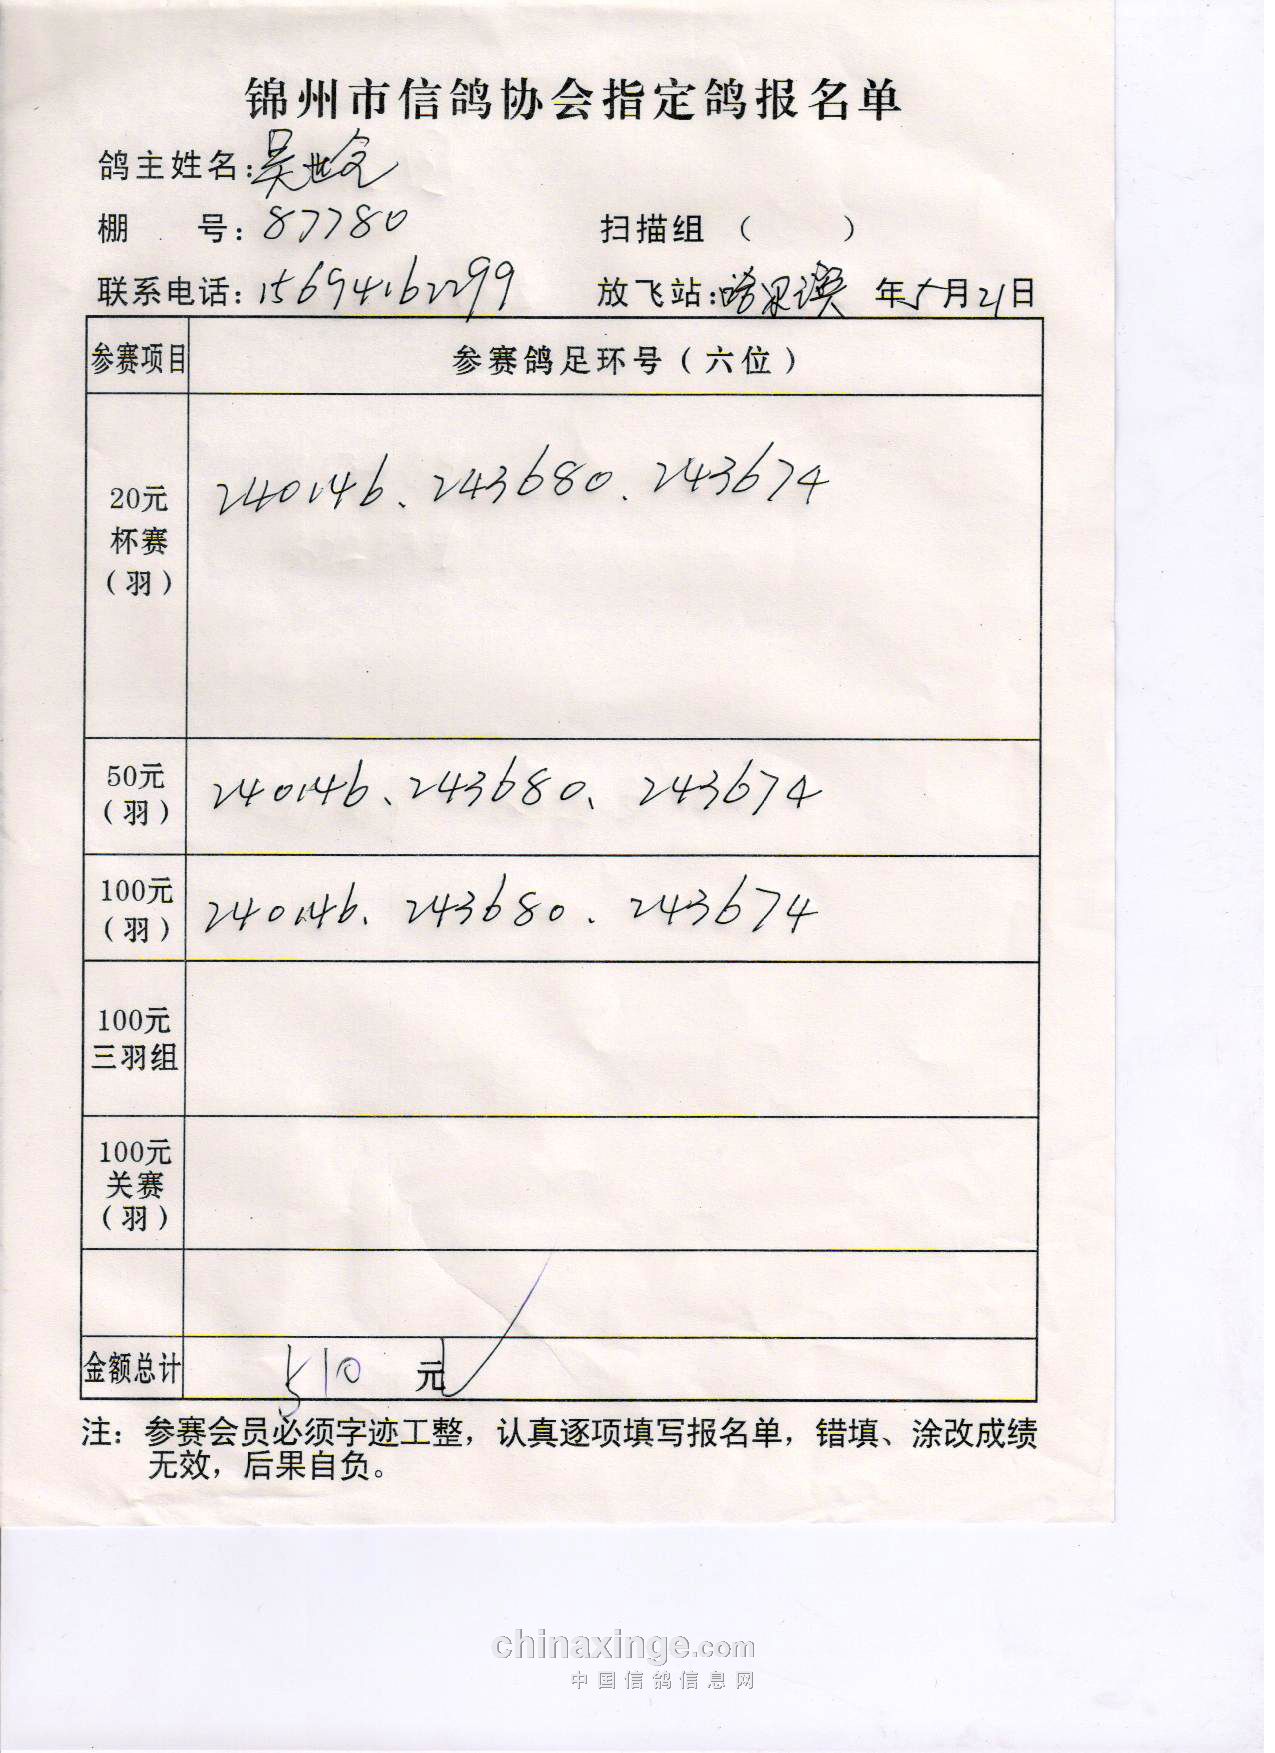 锦州市信鸽协会指定鸽报名单
鸽主姓名:吴世文
棚 号:87780 扫描组 ( )
联系电话:15694162299 放飞站: 年5月21日
参赛项目 参赛鸽足环号(六位)
20元
杯赛
(羽)
240146、243680、243674
50元
(羽)
240146、243680、243674
100元
(羽)
240146、243680、243674
100元
三羽组
100元
关赛
(羽)
金额总计 510 元
注: 参赛会员必须字迹工整,认真逐项填写报名单,错填、涂改成绩
无效,后果自负。
chinaxinge.com
中国信鸽信息网